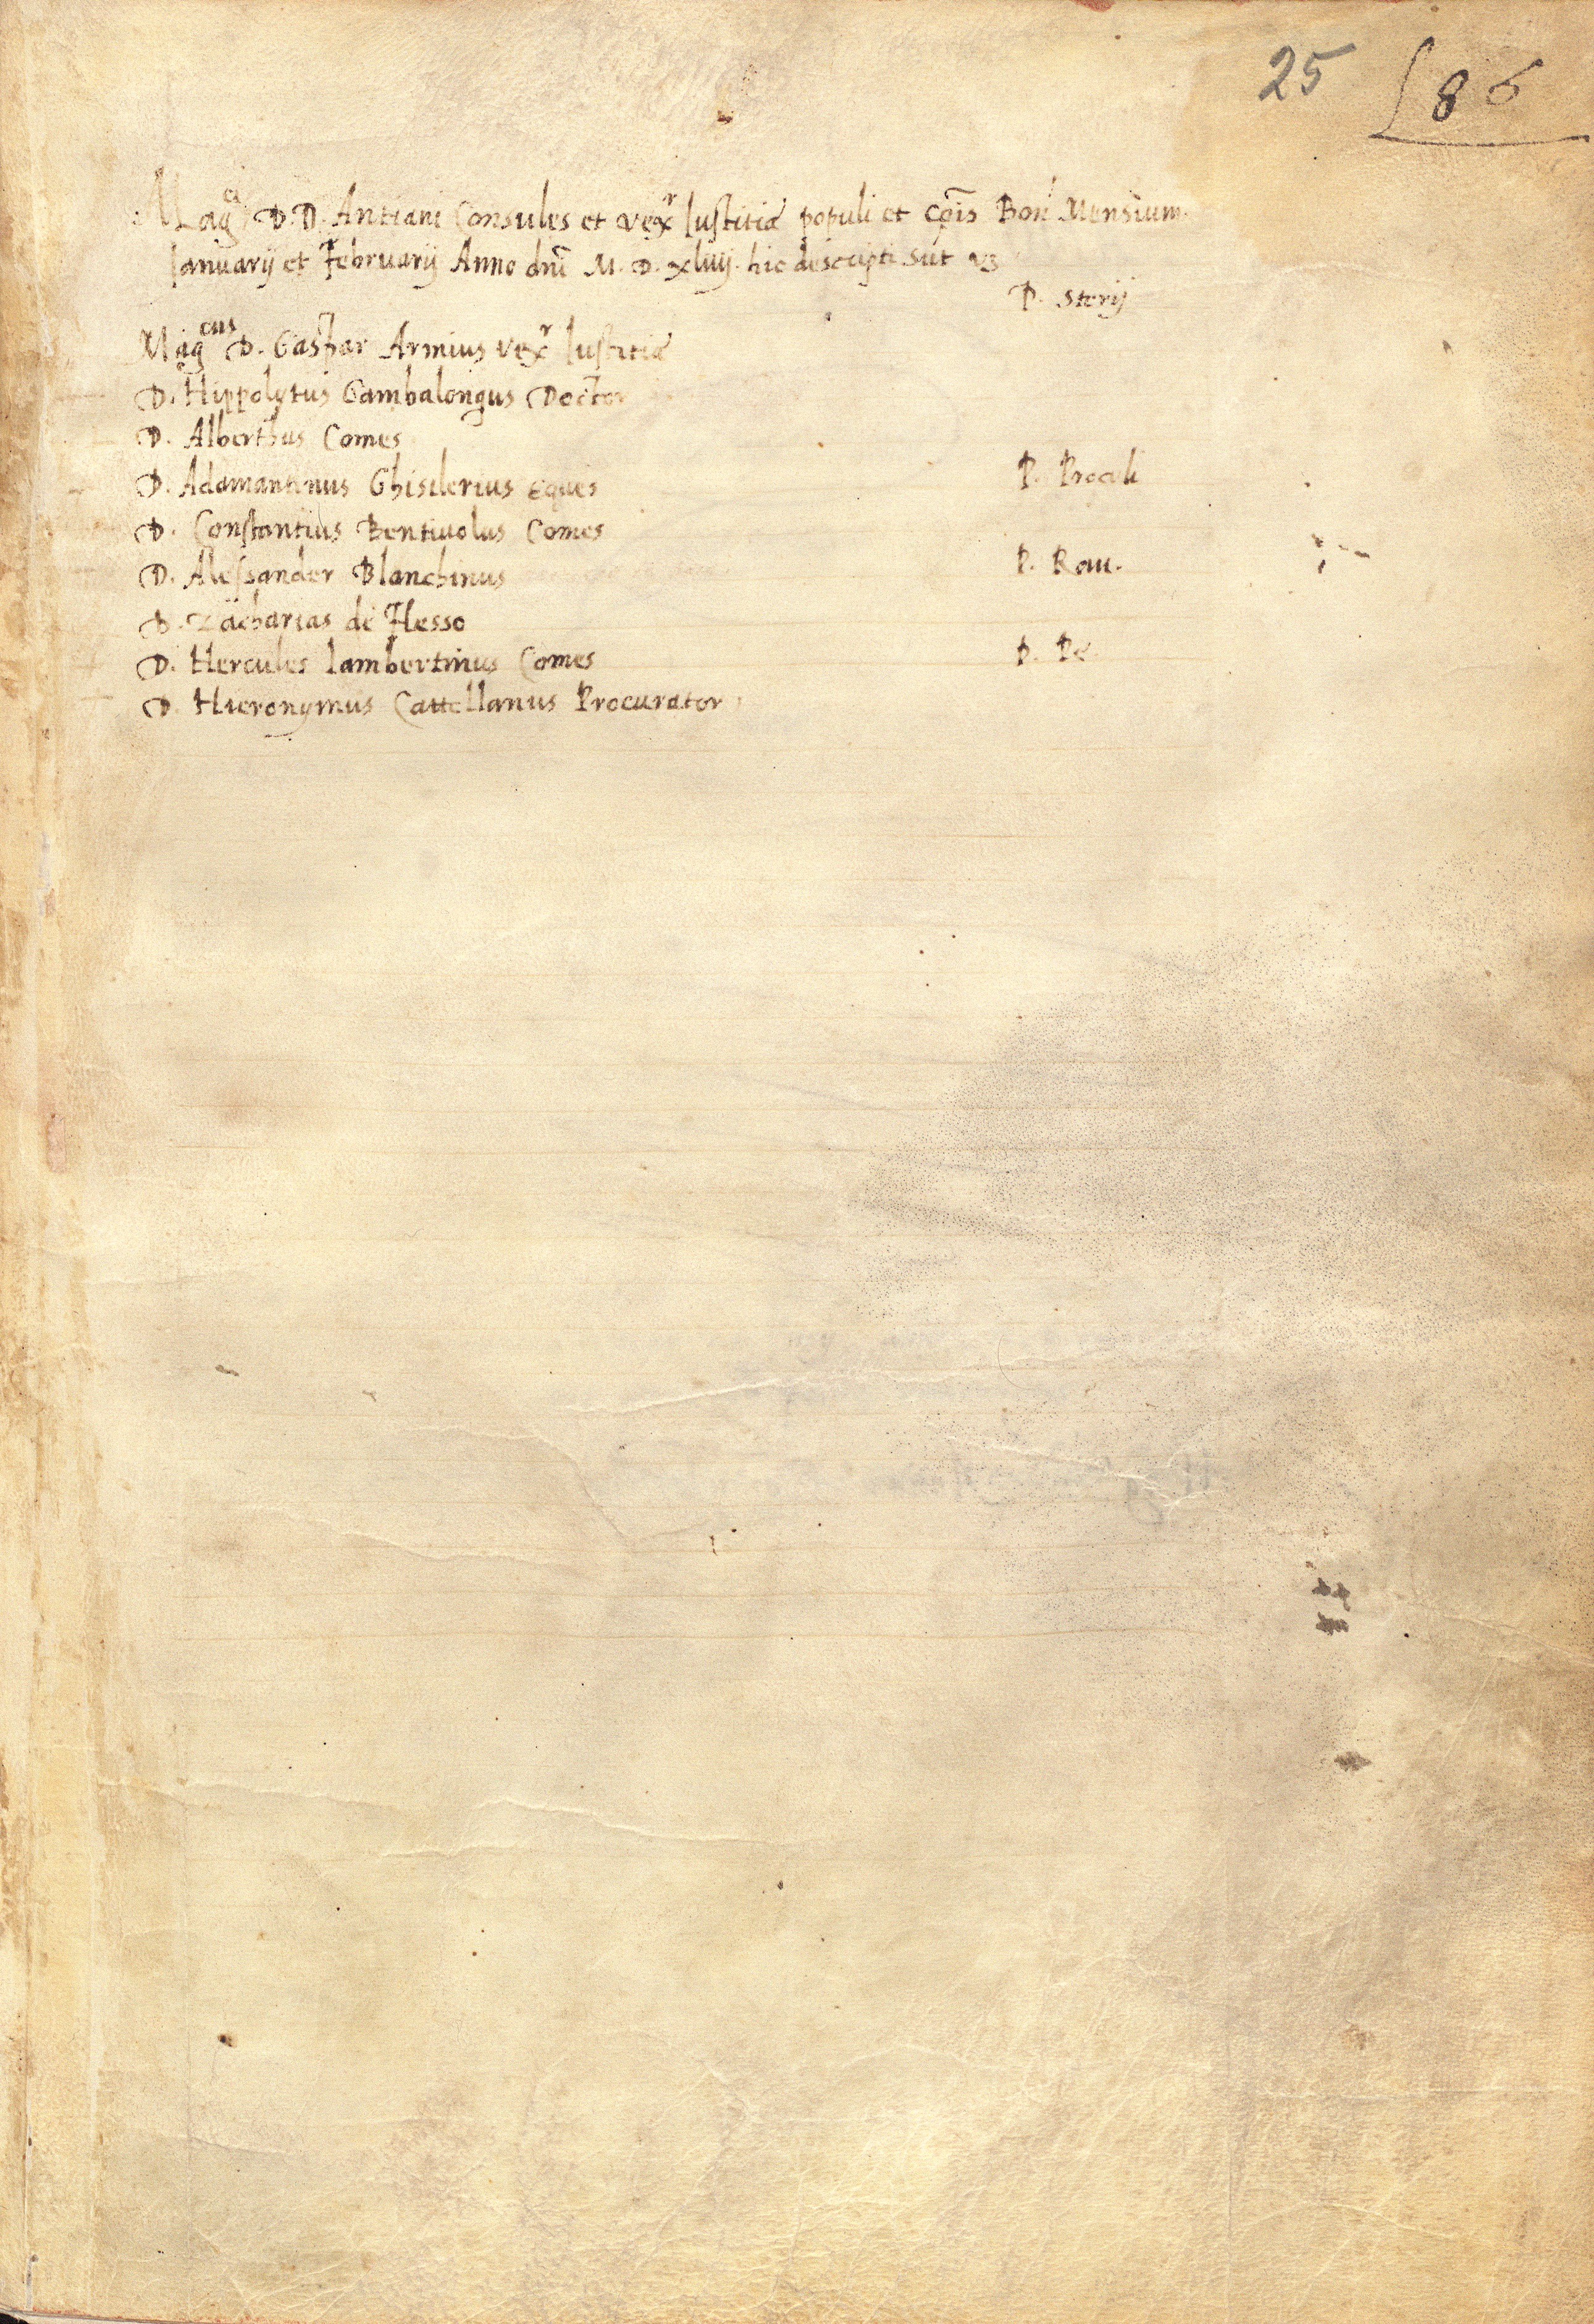 25 86
Magci D.D. Antiani Consules et vexr Iustitiæ populi et cōis Bon Mensium
Ianuarij et Februarij Anno dnī M. D. xliiij. hic descripti sūt vz
P. Sterij
Magcus D. Gaspar Armius vexr Iustitiæ
D. Hippolytus Gambalongus Doctor
D. Alberthus Comes
D. Adamantinus Ghislerius Eques P. Proculi
D. Constantius Bentiuolus Comes
D. Alessander Blanchinus P. Rau.
D. Zacharias de Hesso
D. Hercules Lambertinus Comes P. Pe
D. Hieronymus Cattellanus Procurator